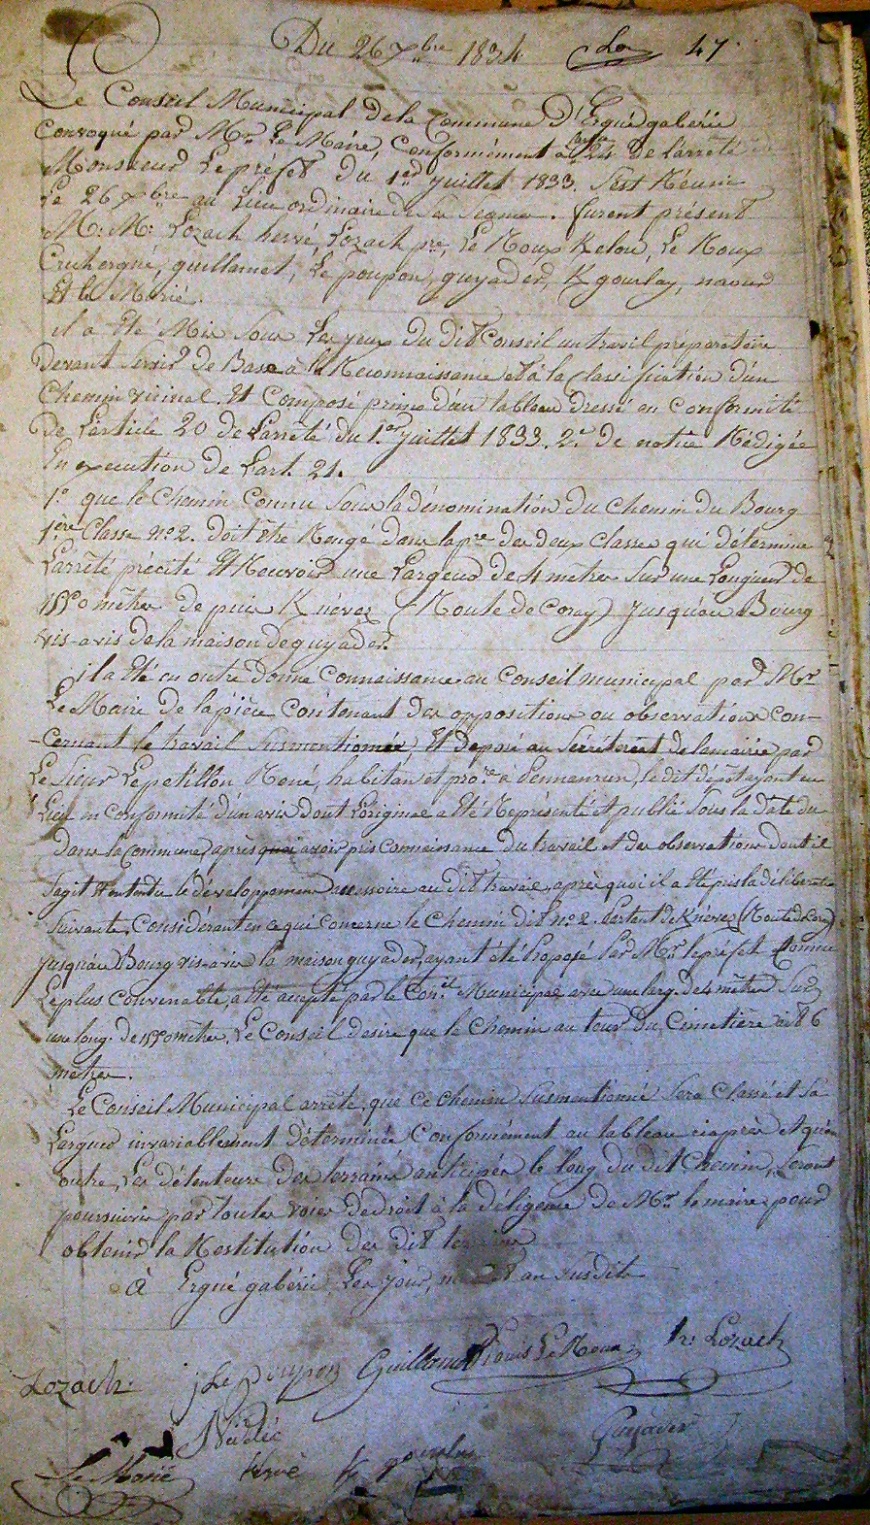 Du 26 Xbre 1834 47
Le Conseil Municipal de la Commune D'Ergué gabéric
Convoqué par Mr Le Maire, Conformément à l'art. 24 de L'arrêté de
Monsieur Le préfet du 1er juillet 1833. S'est Réunie
Le 26 Xbre au Lieu ordinaire de Ses Séances. furent présent
M. M. Lozach hervé, Lozach pre, Le Roux Kelou, Le Roux
Cruhergué, guillamet, Le poupon, guyader, K gourlay, naour
Et le Marié.
il a Eté Mis Sous Les yeux du dit Conseil un travail préparatoire
Devant Servir de Base à la Reconnaissance et à la Classification d'un
Chemin vicinal. Et Composé primo d'un tableau dressé en conformité
De L'article 20 de L'arrêté du 1er juillet 1833. 2e de notice Rédigée
En execution de L'art. 21.
1e que le Chemin Connu Sous la dénomination du Chemin du Bourg
1ère Classe no 2. doit être Rangé dans la pre des deux Classes qui détermine
L'arrêté précité Et Recevoir une Largeur de 4 mètres Sur une Longueur de
1550 mètres depuis Knévez (Route de Coray) jusqu'au Bourg
vis-avis de la maison de guyader.
il a Eté en outre donné Connaissance au Conseil municipal par Mr
Le Maire de la pièce Contenant des oppositions ou observations con-
-cernant le travail Susmentionnée, Et déposé au Sécrétariat de la mairie par
Le Sieur Lepetillon René, habitan et pro.re à Pennanrun, le dit dépôt ayant eu
Lieu en conformité d'un avis dont L'original a Eté Représenté et publié Sous la date du
Dans la Commune, après avoir pris Connaissance du travail et des observations dont il
Sagit Et entendu le développement accessoire au dit travail, après quoi il a Eté pris la délibération
Suivante, Considérant en ce qui Concerne le Chemin dit no 2. Partant de Knévez (Route de Coray)
jusqu'au Bourg vis-avis la maison guyader, ayant été Proposé Par Mr le préfet Comme
Le plus Convenable, a Eté accepté par le Con.eil Municipal avec une larg. de 4 mètres Sur
une long. de 1550 mètres, Le Conseil desire que le Chemin autour du Cimetière ai 86
metres.
Le Conseil Municipal arrête, que ce Chemin Susmentionné Sera Classé et Sa
Largeur invariablement Déterminée Conformément au tableau ciaprès et qu'en
outre, Les détenteurs des terrains anticipés le long du dit Chemin, Seront
poursuivis par toutes voies de droit à la diligence de Mr le maire pour
obtenir la Restitution des dits terrains
à Ergué gabéric Les jour, mois et an Susdits
Lozach J Le poupon Guillamet Louis Le Roux hr: Lozach
Nédélec
Le Marié hervé K gourlay Guyader